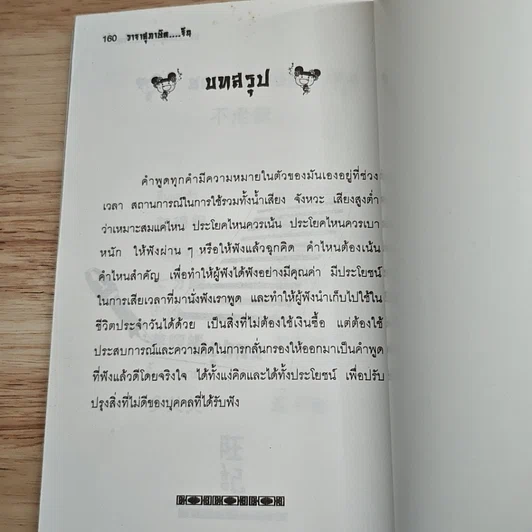 160 วาจาสุภาษิต....จีน
บทสรุป
คำพูดทุกคำมีความหมายในตัวของมันเองอยู่ที่ช่วง
เวลา สถานการณ์ในการใช้รวมทั้งน้ำเสียง จังหวะ เสียงสูงต่ำ
ว่าเหมาะสมแค่ไหน ประโยคไหนควรเน้น ประโยคไหนควรเบา
หนัก ให้ฟังผ่าน ๆ หรือให้ฟังแล้วฉุกคิด คำไหนต้องเน้น
คำไหนสำคัญ เพื่อทำให้ผู้ฟังได้ฟังอย่างมีคุณค่า มีประโยชน์
ในการเสียเวลาที่มานั่งฟังเราพูด และทำให้ผู้ฟังนำเก็บไปใช้ใน
ชีวิตประจำวันได้ด้วย เป็นสิ่งที่ไม่ต้องใช้เงินซื้อ แต่ต้องใช้
ประสบการณ์และความคิดในการกลั่นกรองให้ออกมาเป็นคำพูด
ที่ฟังแล้วดีโดยจริงใจ ได้ทั้งแง่คิดและได้ทั้งประโยชน์ เพื่อปรับ
ปรุงสิ่งที่ไม่ดีของบุคคลที่ได้รับฟัง